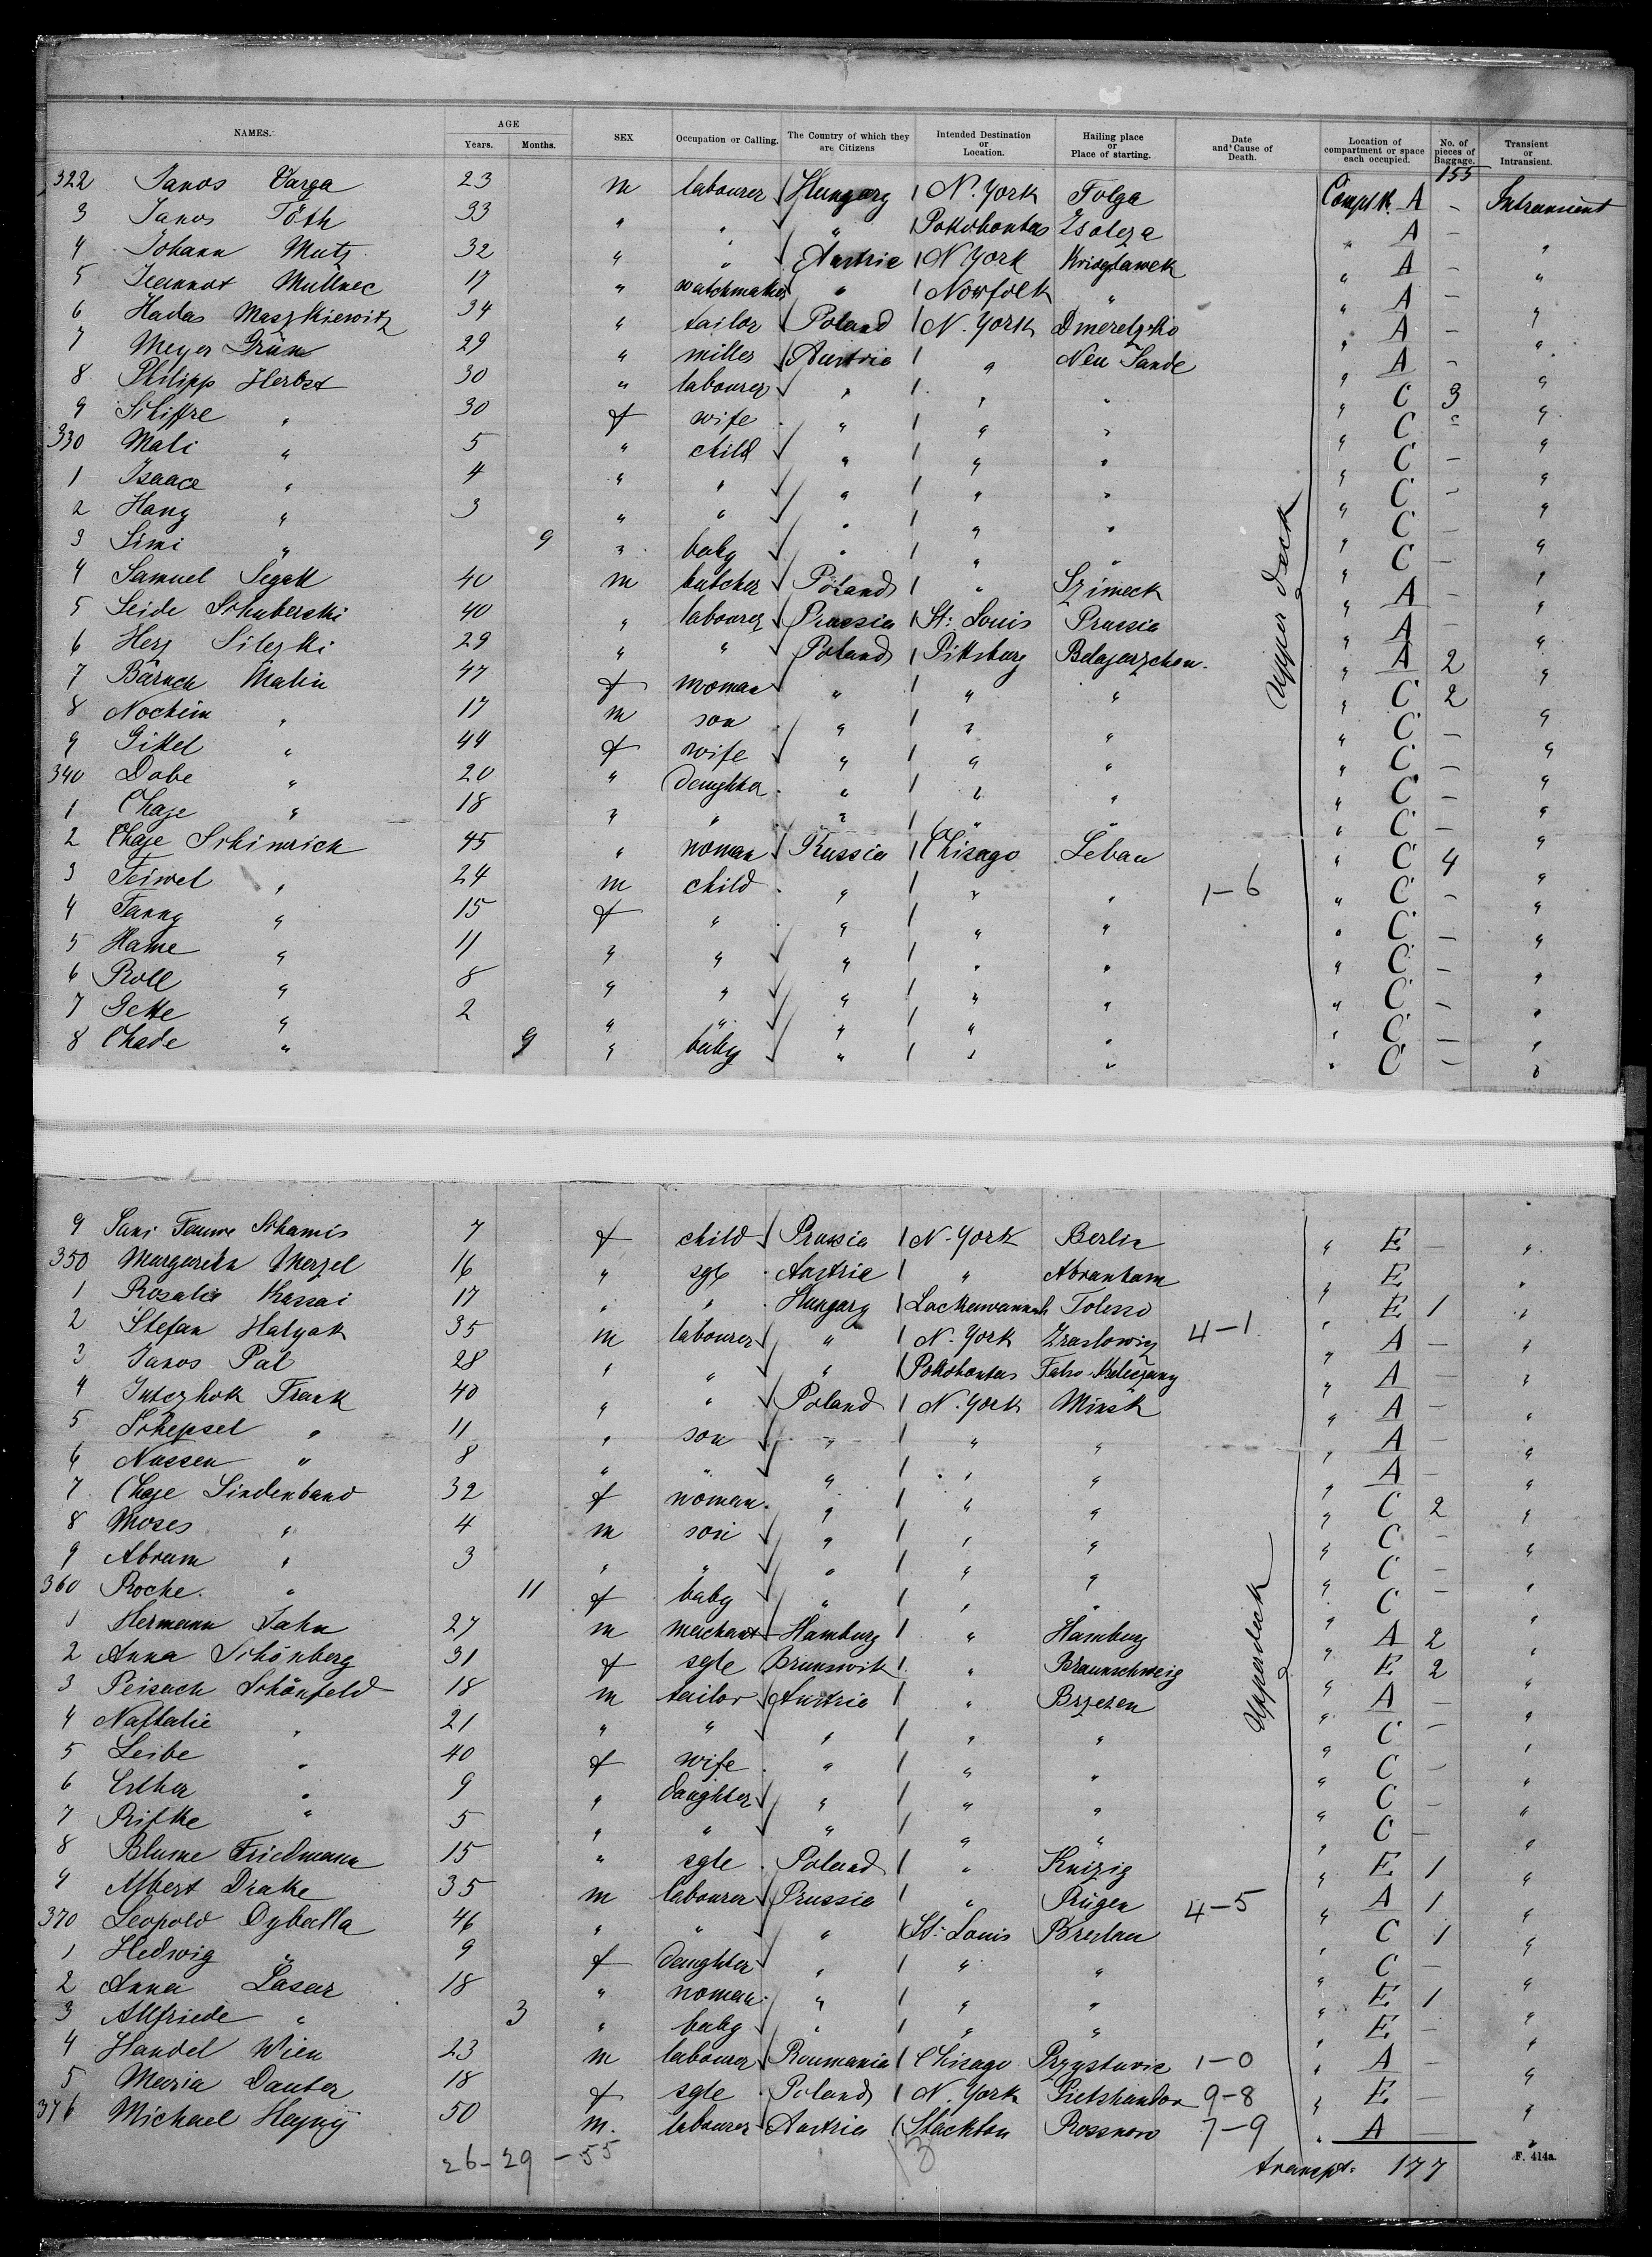 NAMES. AGE Years. Months. SEX Occupation or Calling. The Country of which they are Citizens Intended Destination or Location. Hailing place or Place of starting. Date and Cause of Death. Location of compartment or space each occupied. No. of pieces of Baggage. Transient or Intransient.
155
322 Janos Varga 23 m labourer Hungary N. York Tolga Compt. A - Intransient
3 Janos Tóth 33 " " " Pokohontas Zsoleza " A - "
4 Johann Mutz 32 " " Austria N York " A - "
5 Jeannot Müllnec 17 " watchmaker " Norfolk " " A - "
6 Hadas Maszkiewitz 34 " tailor Poland N. York " A - "
7 Meyer Grün 29 " miller Austria " Neu Sande " A - "
8 Philipp Herbst 30 " labourer " " " " C 3 "
9 Schiffre " 30 f wife " " " " C - "
330 Mali " 5 " child " " " " C - "
1 Isaace " 4 " " " " " " C - "
2 Hany " 3 " " " " " " C - "
3 Simi " 9 " baby " " " " C - "
4 Samuel Segall 40 m butcher Poland " Szimeck " A - "
5 Seide Schuberski 40 " labourer Prussia St: Louis Prussia " A - "
6 Herz Silezki 29 " " Poland Pittsburg Belazerzchen. " A 2 "
7 Baruch Malin 47 f woman " " " " C 2 "
8 Nochein " 17 m son " " " " C - "
9 Gittel " 44 f wife " " " " C - "
340 Dobe " 20 " daughter " " " " C - "
1 Chaje " 18 " " " " " " C - "
2 Chaje Schimrich 45 " woman Russia Chicago Lebau " C 4 "
3 Feiwel " 24 m child " " " 1-6 " C - "
4 Fanny " 15 f " " " " " C - "
5 Hame " 11 " " " " " " C - "
6 Roll " 8 " " " " " " C - "
7 Gette " 2 " " " " " " C - "
8 Chade " 9 " baby " " " " C - "
Upper deck
9 Schamis 7 f child Prussia N. York Berlin " E - "
350 Margaretha Merzel 16 " sgle Austria " Abranham " E - "
1 Rosalia Kassai 17 " " Hungary Lackawannah Tolcso " E 1 "
2 Stefan Halyak 35 m labourer " N. York Zraslowig 4-1 " A - "
3 Janos Pal 28 " " " Pokohontas " A - "
4 Frank 40 " " Poland N. York Minsk " A - "
5 Schepsel " 11 " son " " " " A - "
6 Nassen " 8 " " " " " " A - "
7 Chaje Lindenband 32 f woman " " " " C 2 "
8 Moses " 4 m son " " " " C - "
9 Abram " 3 " " " " " " C - "
360 Roche " 11 f baby " " " " C - "
1 Hermann Jahn 27 m merchant Hamburg " Hamburg " A 2 "
2 Anna Schönberg 31 f sgle Brunswik " Braunschweig " E 2 "
3 Peisach Schönfeld 18 m tailor Austria " Brzezen " A - "
4 Naftalie " 21 " " " " " " C - "
5 Leibe " 40 f wife " " " " C - "
6 Esther " 9 " daughter " " " " C - "
7 Rifke " 5 " " " " " " C - "
8 Blume Friedmann 15 " sgle Poland " Knizig " E 1 "
9 Albert Drake 35 m labourer Prussia " Rügen 4-5 " A 1 "
370 Leopold Dyballa 46 " " " St: Louis Breslau " C 1 "
1 Hedwig " 9 f daughter " " " " C - "
2 Anna Lasar 18 " woman " " " " E 1 "
3 Allfriede " 3 " baby " " " " E - "
4 Handel Wien 23 m labourer Roumania Chicago Przystuvic 1-0 " A - "
5 Maria Dauter 18 f sgle Poland N. York 9-8 " E - "
376 Michael Hajnij 50 m. labourer Austria Stockton Rossnow 7-9 " A - "
Upperdeck
26-29-55 13 transpt: 177 F. 414a.